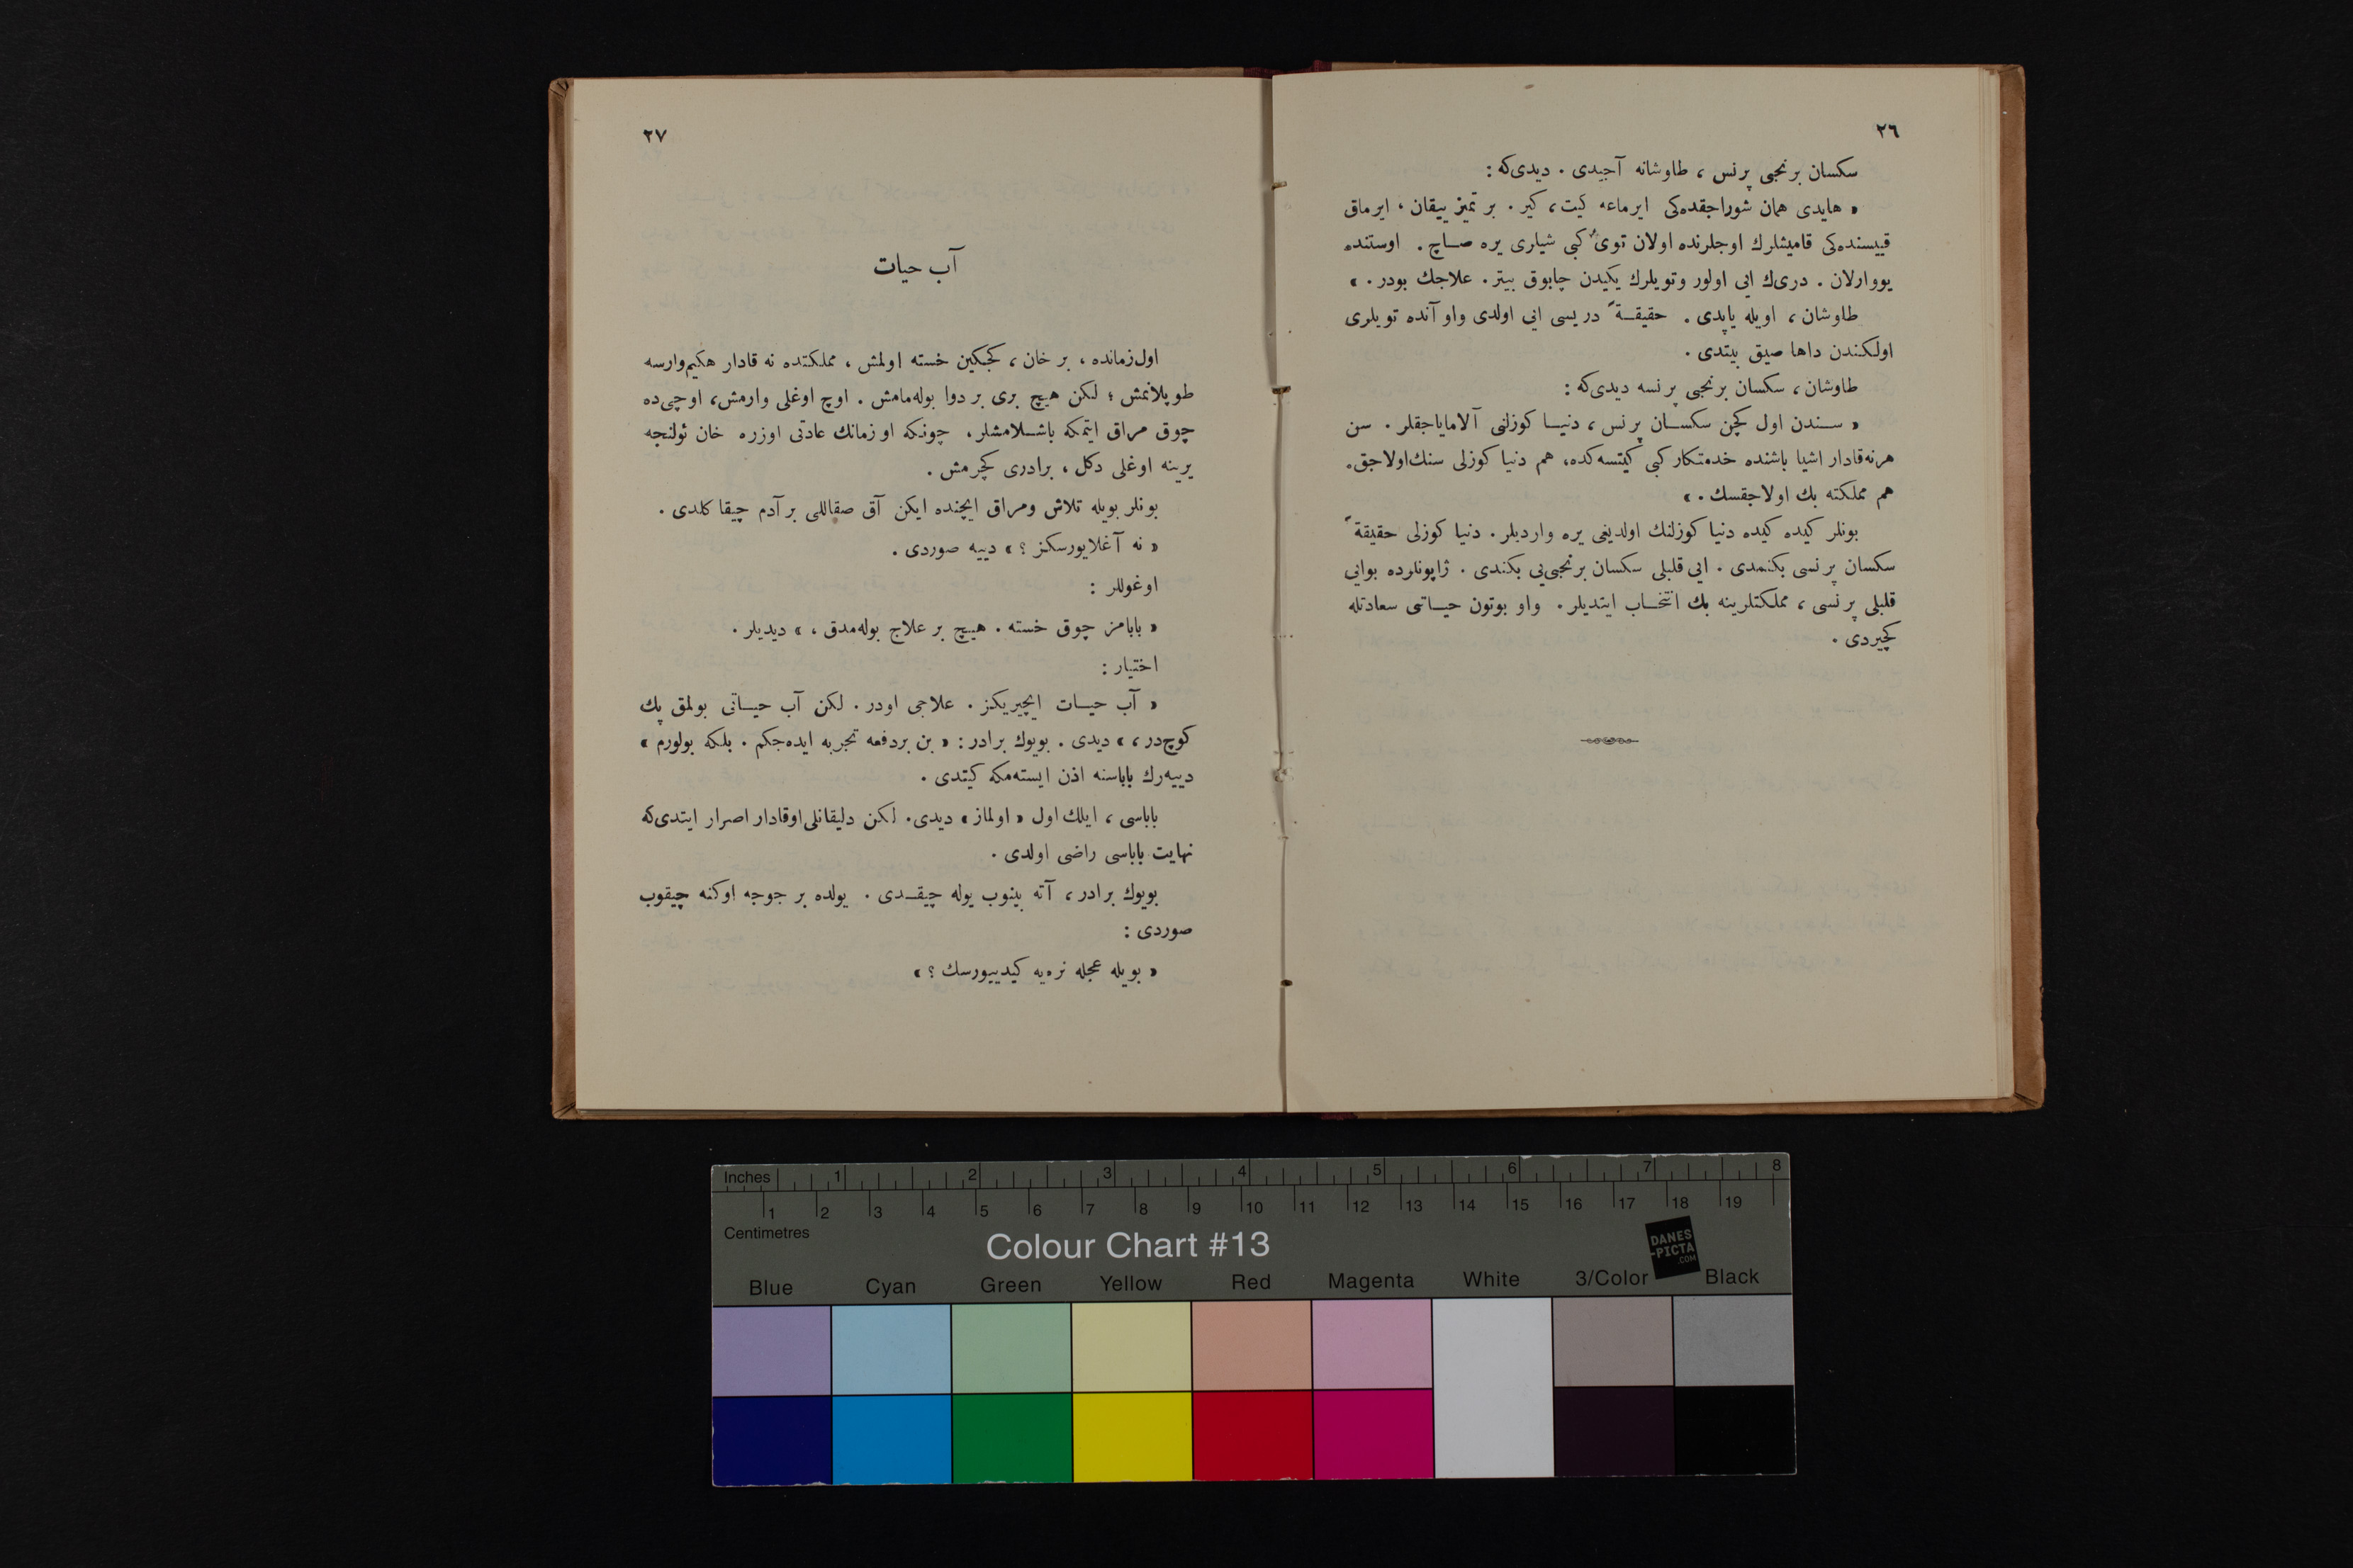 ٢٦
سكسان برنجی پرنس ، طاوشانه آجیدی . دیدی‌كه :
« هایدی همان شوراجقده‌كی ایرماغه كیت ، كیر . بر تمیز ییقان ، ایرماق
قییسنده‌كی قامیشلرك اوجلرنده اولان توی كبی شیلری یره صـاچ . اوستنده
یووارلان . دریك ایی اولور وتویلرك یكیدن چابوق بیتر . علاجك بودر . »
طاوشان ، اویله یاپدی . حقیقـةً دریسی ایی اولدی واو آنده تویلری
اولكندن داها صیق بیتدی .
طاوشان ، سكسان برنجی پرنسه دیدی‌كه :
« سـندن اول كچن سكسـان پرنس ، دنیـا كوزلنی آلامایاجقلر . سن
هرنه‌قادار اشیا باشنده خدمتكار كبی كیتسه‌كده ، هم دنیا كوزلی سنك اولاجق .
هم مملكته بك اولاجقسك . »
بونلر كیده كیده دنیا كوزلنك اولدیغی یره واردیلر . دنیا كوزلی حقیقةً
سكسان پرنسی بكنمدی . ایی قلبلی سكسان برنجی‌یی بكندی . ژاپونلرده بوایی
قلبلی پرنسی ، مملكتلرینه بك انتخـاب ایتدیلر . واو بوتون حیـاتی سعادتله
كچیردی .
٢٧
آب حیات
اول زمانده ، بر خان ، كجكین خسته اولمش ، مملكتده نه قادار هكیم وارسه
طوپلانمش ؛ لكن هیچ بری بر دوا بوله‌مامش . اوچ اوغلی وارمش ، اوچی‌ده
چوق مراق ایتمكه باشـلامشلر ، چونكه او زمانك عادتی اوزره خان ئولنجه
یرینه اوغلی دكل ، برادری كچرمش .
بونلر بویله تلاش ومراق ایچنده ایكن آق صقاللی بر آدم چیقا كلدی .
« نه آغلایورسكز ؟ » دییه صوردی .
اوغوللر :
« بابامز چوق خسته . هیچ بر علاج بوله‌مدق ، » دیدیلر .
اختیار :
« آب حیـات ایچیریكز . علاجی اودر . لكن آب حیـاتی بولمق پك
كوچ‌در ، » دیدی . بویوك برادر : « بن بردفعه تجربه ایده‌جكم . بلكه بولورم »
دییه‌رك باباسنه اذن ایسته‌مكه كیتدی .
باباسی ، ایلك اول « اولماز » دیدی . لكن دلیقانلی اوقادار اصرار ایتدی‌كه
نهایت باباسی راضی اولدی .
بویوك برادر ، آته بینوب یوله چیقـدی . یولده بر جوجه اوكنه چیقوب
صوردی :
« بویله عجله نره‌یه كیدییورسك ؟ »
Inches 1 2 3 4 5 6 7 8
1 2 3 4 5 6 7 8 9 10 11 12 13 14 15 16 17 18 19
Centimetres
Colour Chart #13
DANES
-PICTA
.COM
Blue Cyan Green Yellow Red Magenta White 3/Color Black